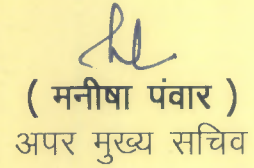 ( मनीषा पंवार )
अपर मुख्य सचिव